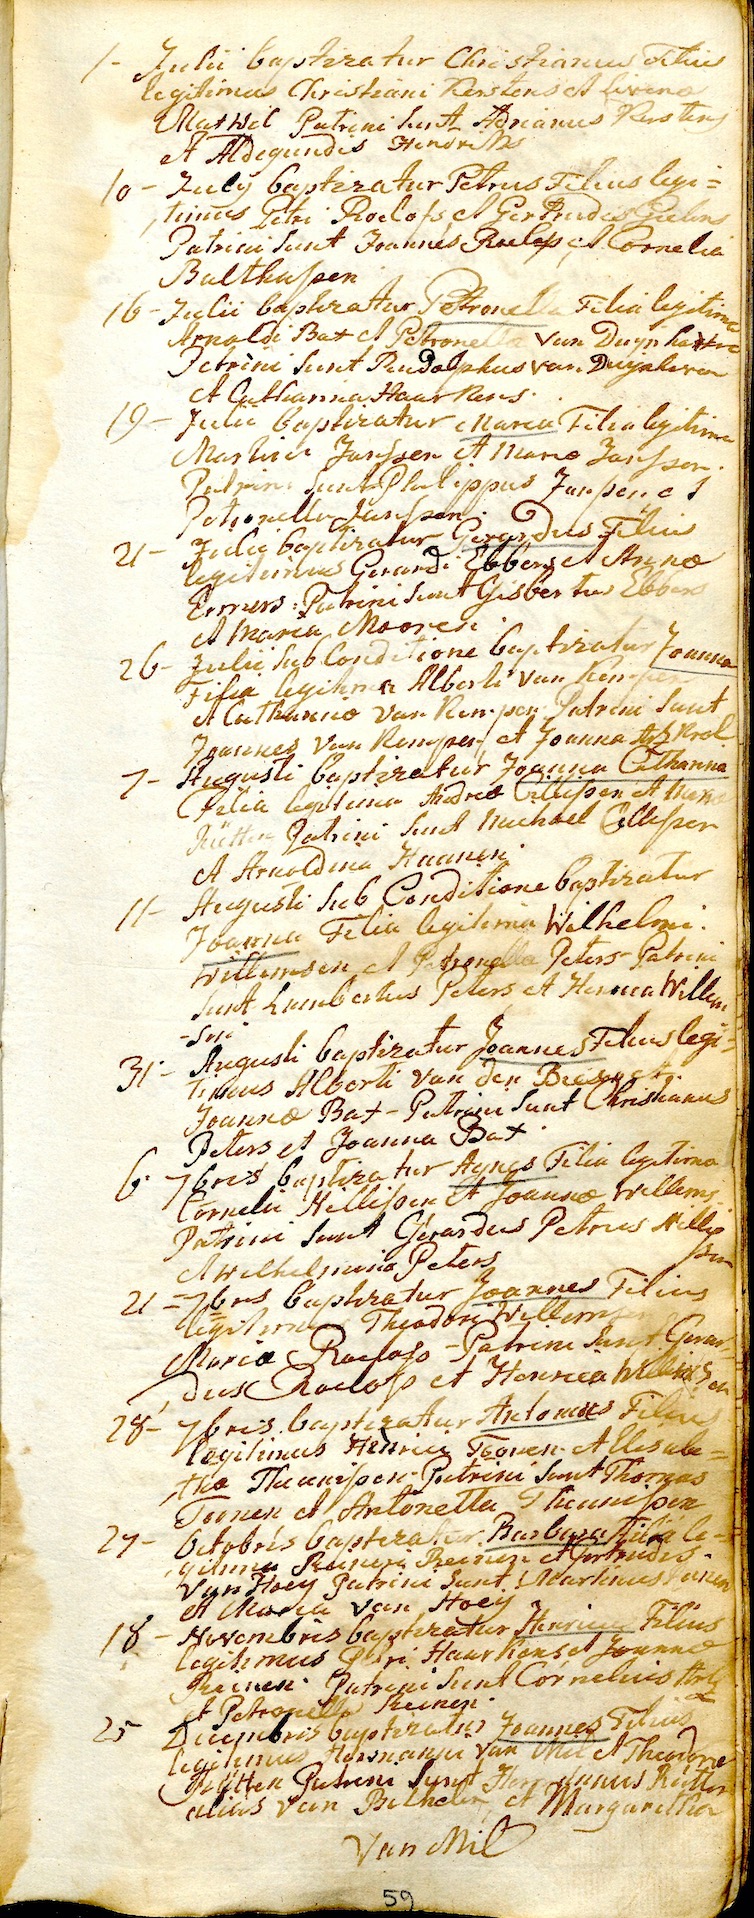 1- Julii baptizatur Christianus Filius
legitimus Christiani Kerstens et Livinæ
Maxwil Patrini sunt Adrianus Kersten
et Aldegundis Hendriks
10- July baptizatur Petrus Filius legi=
timus Petri Roelofs et Gertrudis Geelens
Patrini sunt Joannes Roelofs et Cornelia
Balthussen
16- Julii baptizatur Petronella Filia legitima
Arnoldi Bax et Petronellæ van Duynhoven
Patrini sunt Rudolphus van Duynhoven
et Catharina Haarkens.
19- Julii baptizatur Maria Filia legitima
Martini Janssen et Mariæ Janssen.
Patrini sunt Philippus Janssen et
Petronella Janssen.
21- Julii baptizatur Gerardus Filius
legitimus Gerardi Ebbers et Annæ
Ermers: Patrini sunt Gisbertus Ebbers
et Maria Mooren.
26- Julii sub Conditione baptizatur Joanna
Filia legitima Alberti van Kempen
et Catharinæ van Kempen. Patrini sunt
Joannes van Kempen et Joanna
7- Augusti baptizatur Joanna Catharina
Filia legitima Andreæ Cillissen et Mariæ
Rütten Patrini sunt Michael Cillissen
et Arnoldina Haanen.
11- Augusti sub Conditione baptizatur
Joanna Filia legitima Wilhelmi
Willemsen et Petronellæ Peters- Patrini
sunt Lambertus Peters et Henrica Willem
-sen
31- Augusti baptizatur Joannes Filius legi-
timus Alberti van den et
Joannæ Bax- Patrini sunt Christianus
Peters et Joanna Bax.
6- 7bris baptizatur Agnes Filia legitima
Cornelii Hillissen et Joannæ Willems.
Patrini sunt Gerardus Petrus Hillis
sen
et Wilhelmina Peters
21- 7bris baptizatur Joannes Filius
legitimus Theodori Willemsen
Mariæ Roelofs - Patrini sunt Gerar-
dus Roelofs et Henrica Willemsen
28- 7bris baptizatur Antonius Filius
legitimus Henrici Toonen et Elisabe=
thæ Theunissen- Patrini sunt Thomas
Toonen et Antonetta Theunissen
27- Octobris baptizatur Barbara Filia le-
gitima Reineri Reinen et Gertrudis
van Hoey Patrini sunt Martinus
et Maria van Hoey
18- Novembris baptizatur Henricus Filius
legitimus Petri Haarkens et Joannæ
Reinen. Patrini sunt Cornelius
et Petronella Reinen.
25 Decembris baptizatur Joannes Filius
legitimus Hermanni van Mil et Theodoræ
Rütten Patrini sunt Hermannus Rütten
alias van et Margaretha
van Mil
59